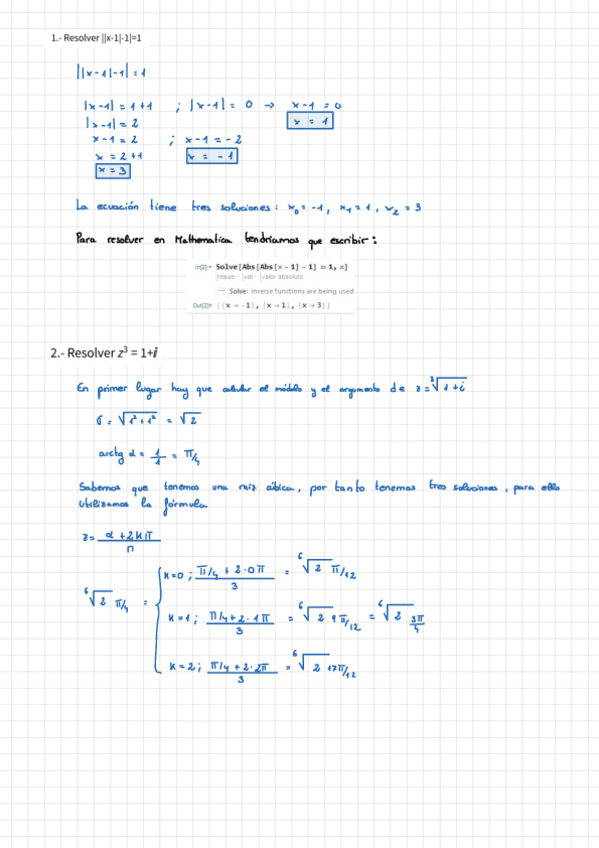 1.- Resolver ||x-1|-1|=1
||x-1|-1|=1
|x-1| = 1+1 ; |x-1| = 0 → x-1 = 0
|x-1| = 2 x = 1
x-1 = 2 ; x-1 = -2
x = 2+1 x = -1
x = 3
La ecuación tiene tres soluciones: x₀ = -1, x₁ = 1, x₂ = 3
Para resolver en Mathematica tendríamos que escribir:
In[2]:= Solve[Abs[Abs[x - 1] - 1] = 1, x]
resue⋯ val⋯ valor absoluto
Solve: Inverse functions are being used
Out[2]= {{x → -1}, {x → 1}, {x → 3}}
2.- Resolver z³ = 1+i
En primer lugar hay que calcular el módulo y el argumento de z = ³√1+i
r = √1²+1² = √2
arctg α = 1/1 = π/4
Sabemos que tenemos una raíz cúbica, por tanto tenemos tres soluciones, para ello
utilizamos la fórmula
z = α + 2kπ / n
k=0 ; π/4 + 2·0π / 3 = ⁶√2 π/12
⁶√2 π/4 = k=1 ; π/4 + 2·1π / 3 = ⁶√2 9π/12 = ⁶√2 3π/4
k=2 ; π/4 + 2·2π / 3 = ⁶√2 17π/12